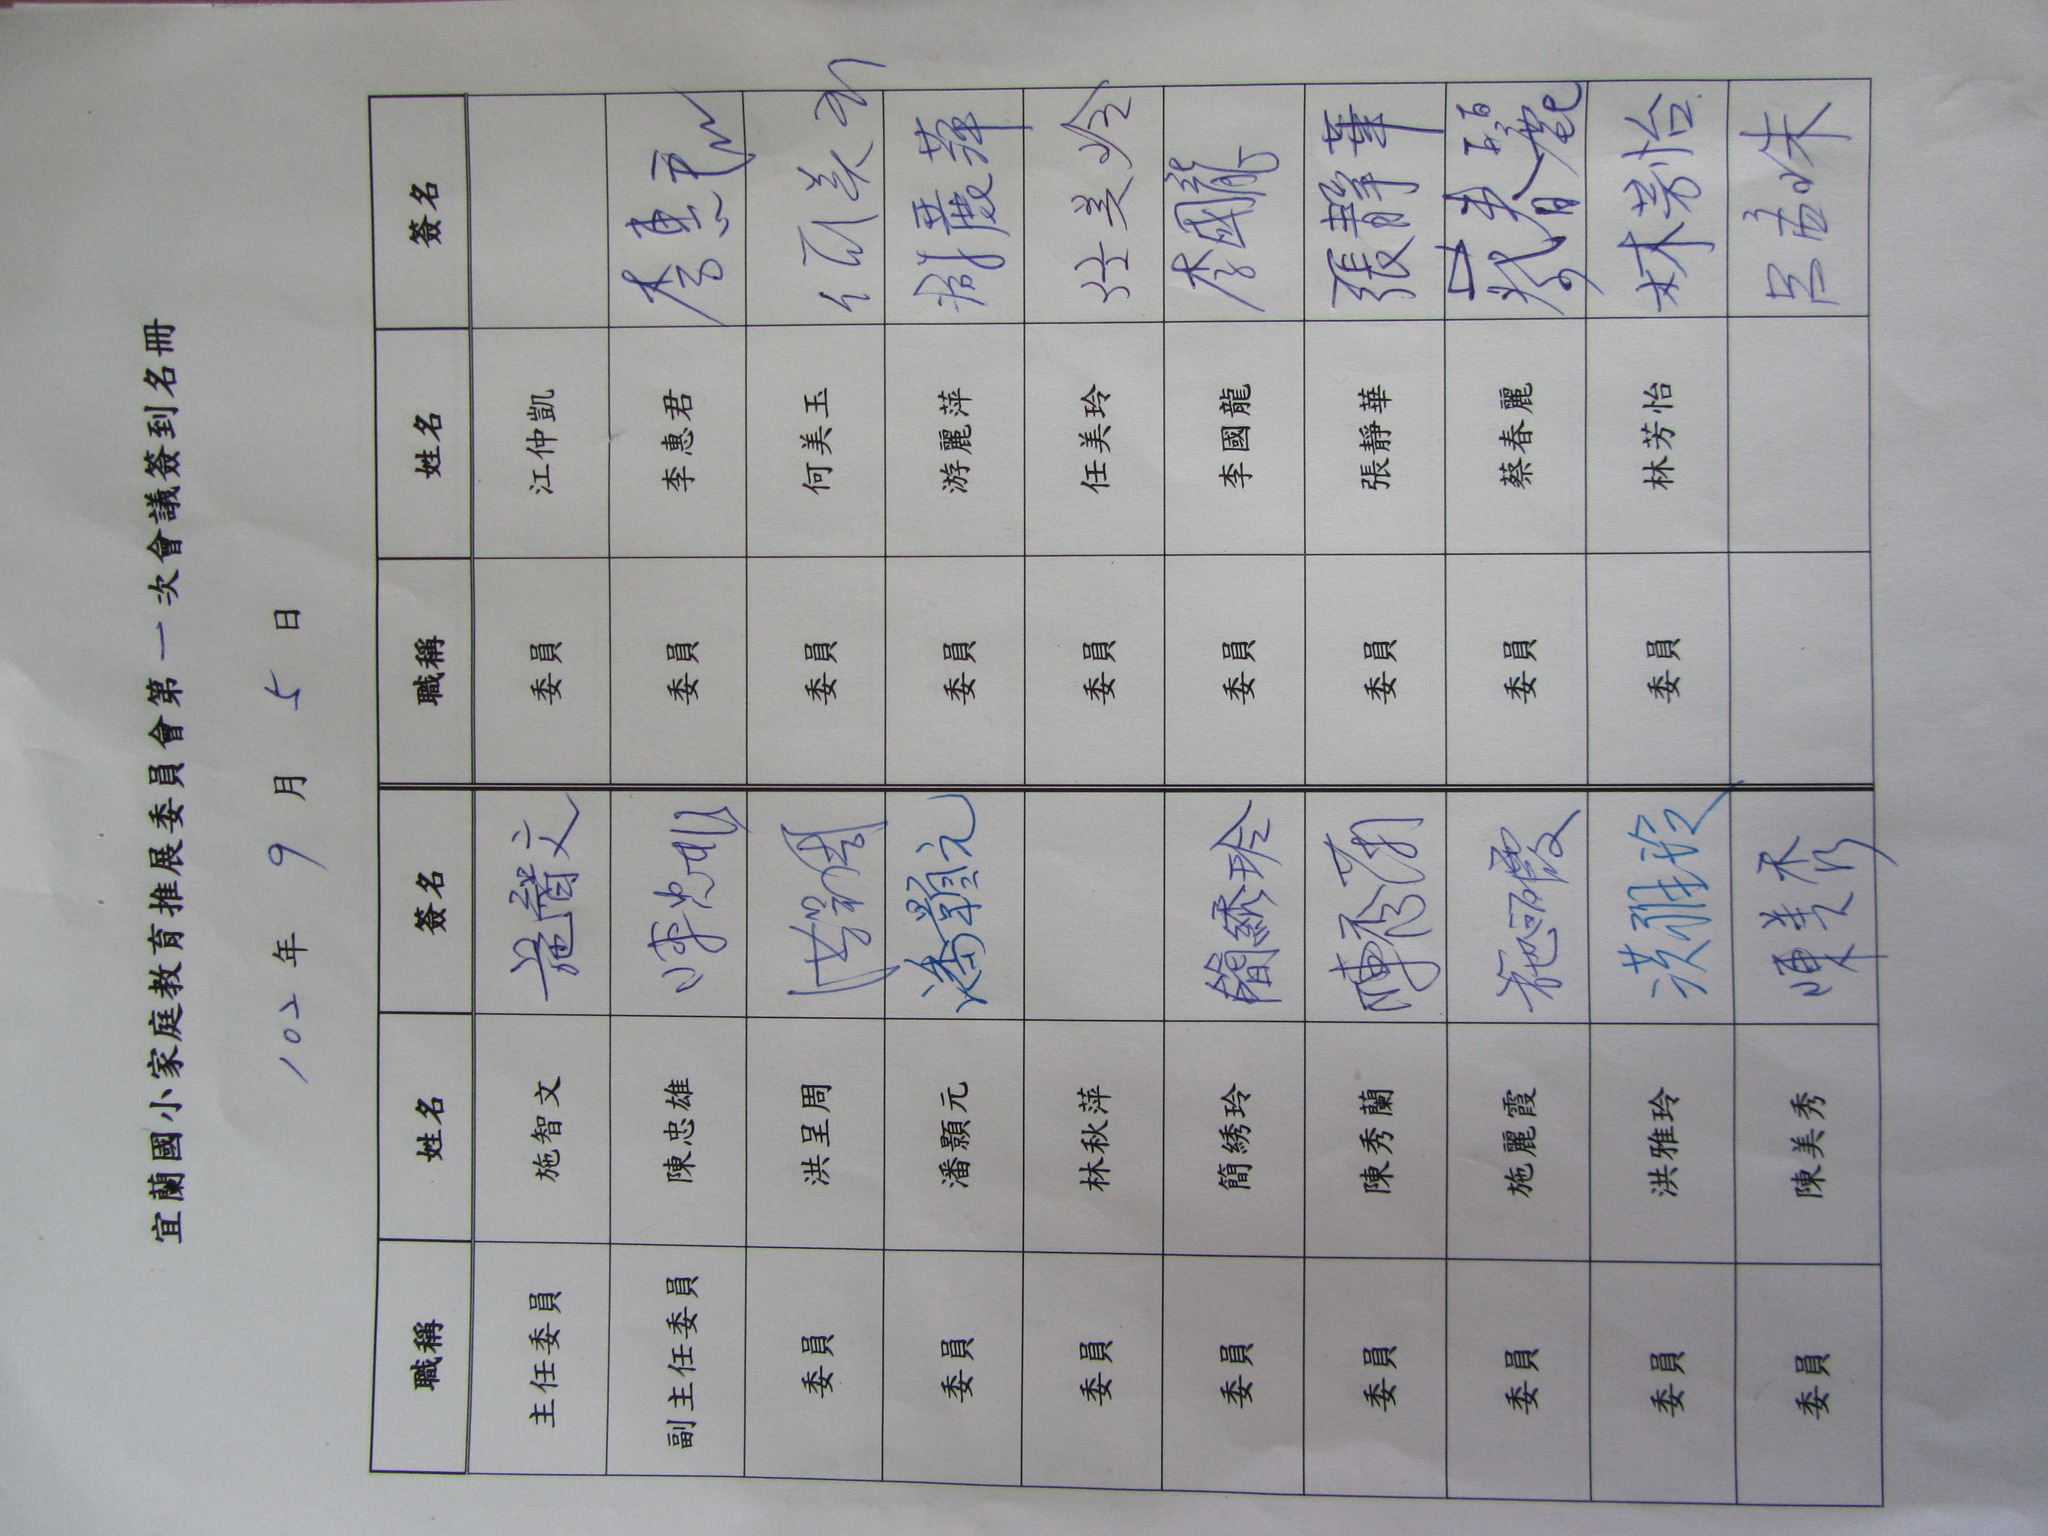 宜蘭國小家庭教育推展委員會第一次會議簽到名冊
102年 9 月 5 日
職稱 姓名 簽名 職稱 姓名 簽名
主任委員 施智文 施智文 委員 江仲凱
副主任委員 陳忠雄 陳忠雄 委員 李惠君 李惠君
委員 洪呈周 洪呈周 委員 何美玉 何美玉
委員 潘顥元 潘顥元 委員 游麗萍 游麗萍
委員 林秋萍 委員 任美玲 任美玲
委員 簡綉玲 簡綉玲 委員 李國龍 李國龍
委員 陳秀蘭 陳秀蘭 委員 張靜華 張靜華
委員 施麗霞 施麗霞 委員 蔡春麗 蔡春麗
委員 洪雅玲 洪雅玲 委員 林芳怡 林芳怡
委員 陳美秀 陳美秀 呂孟咪